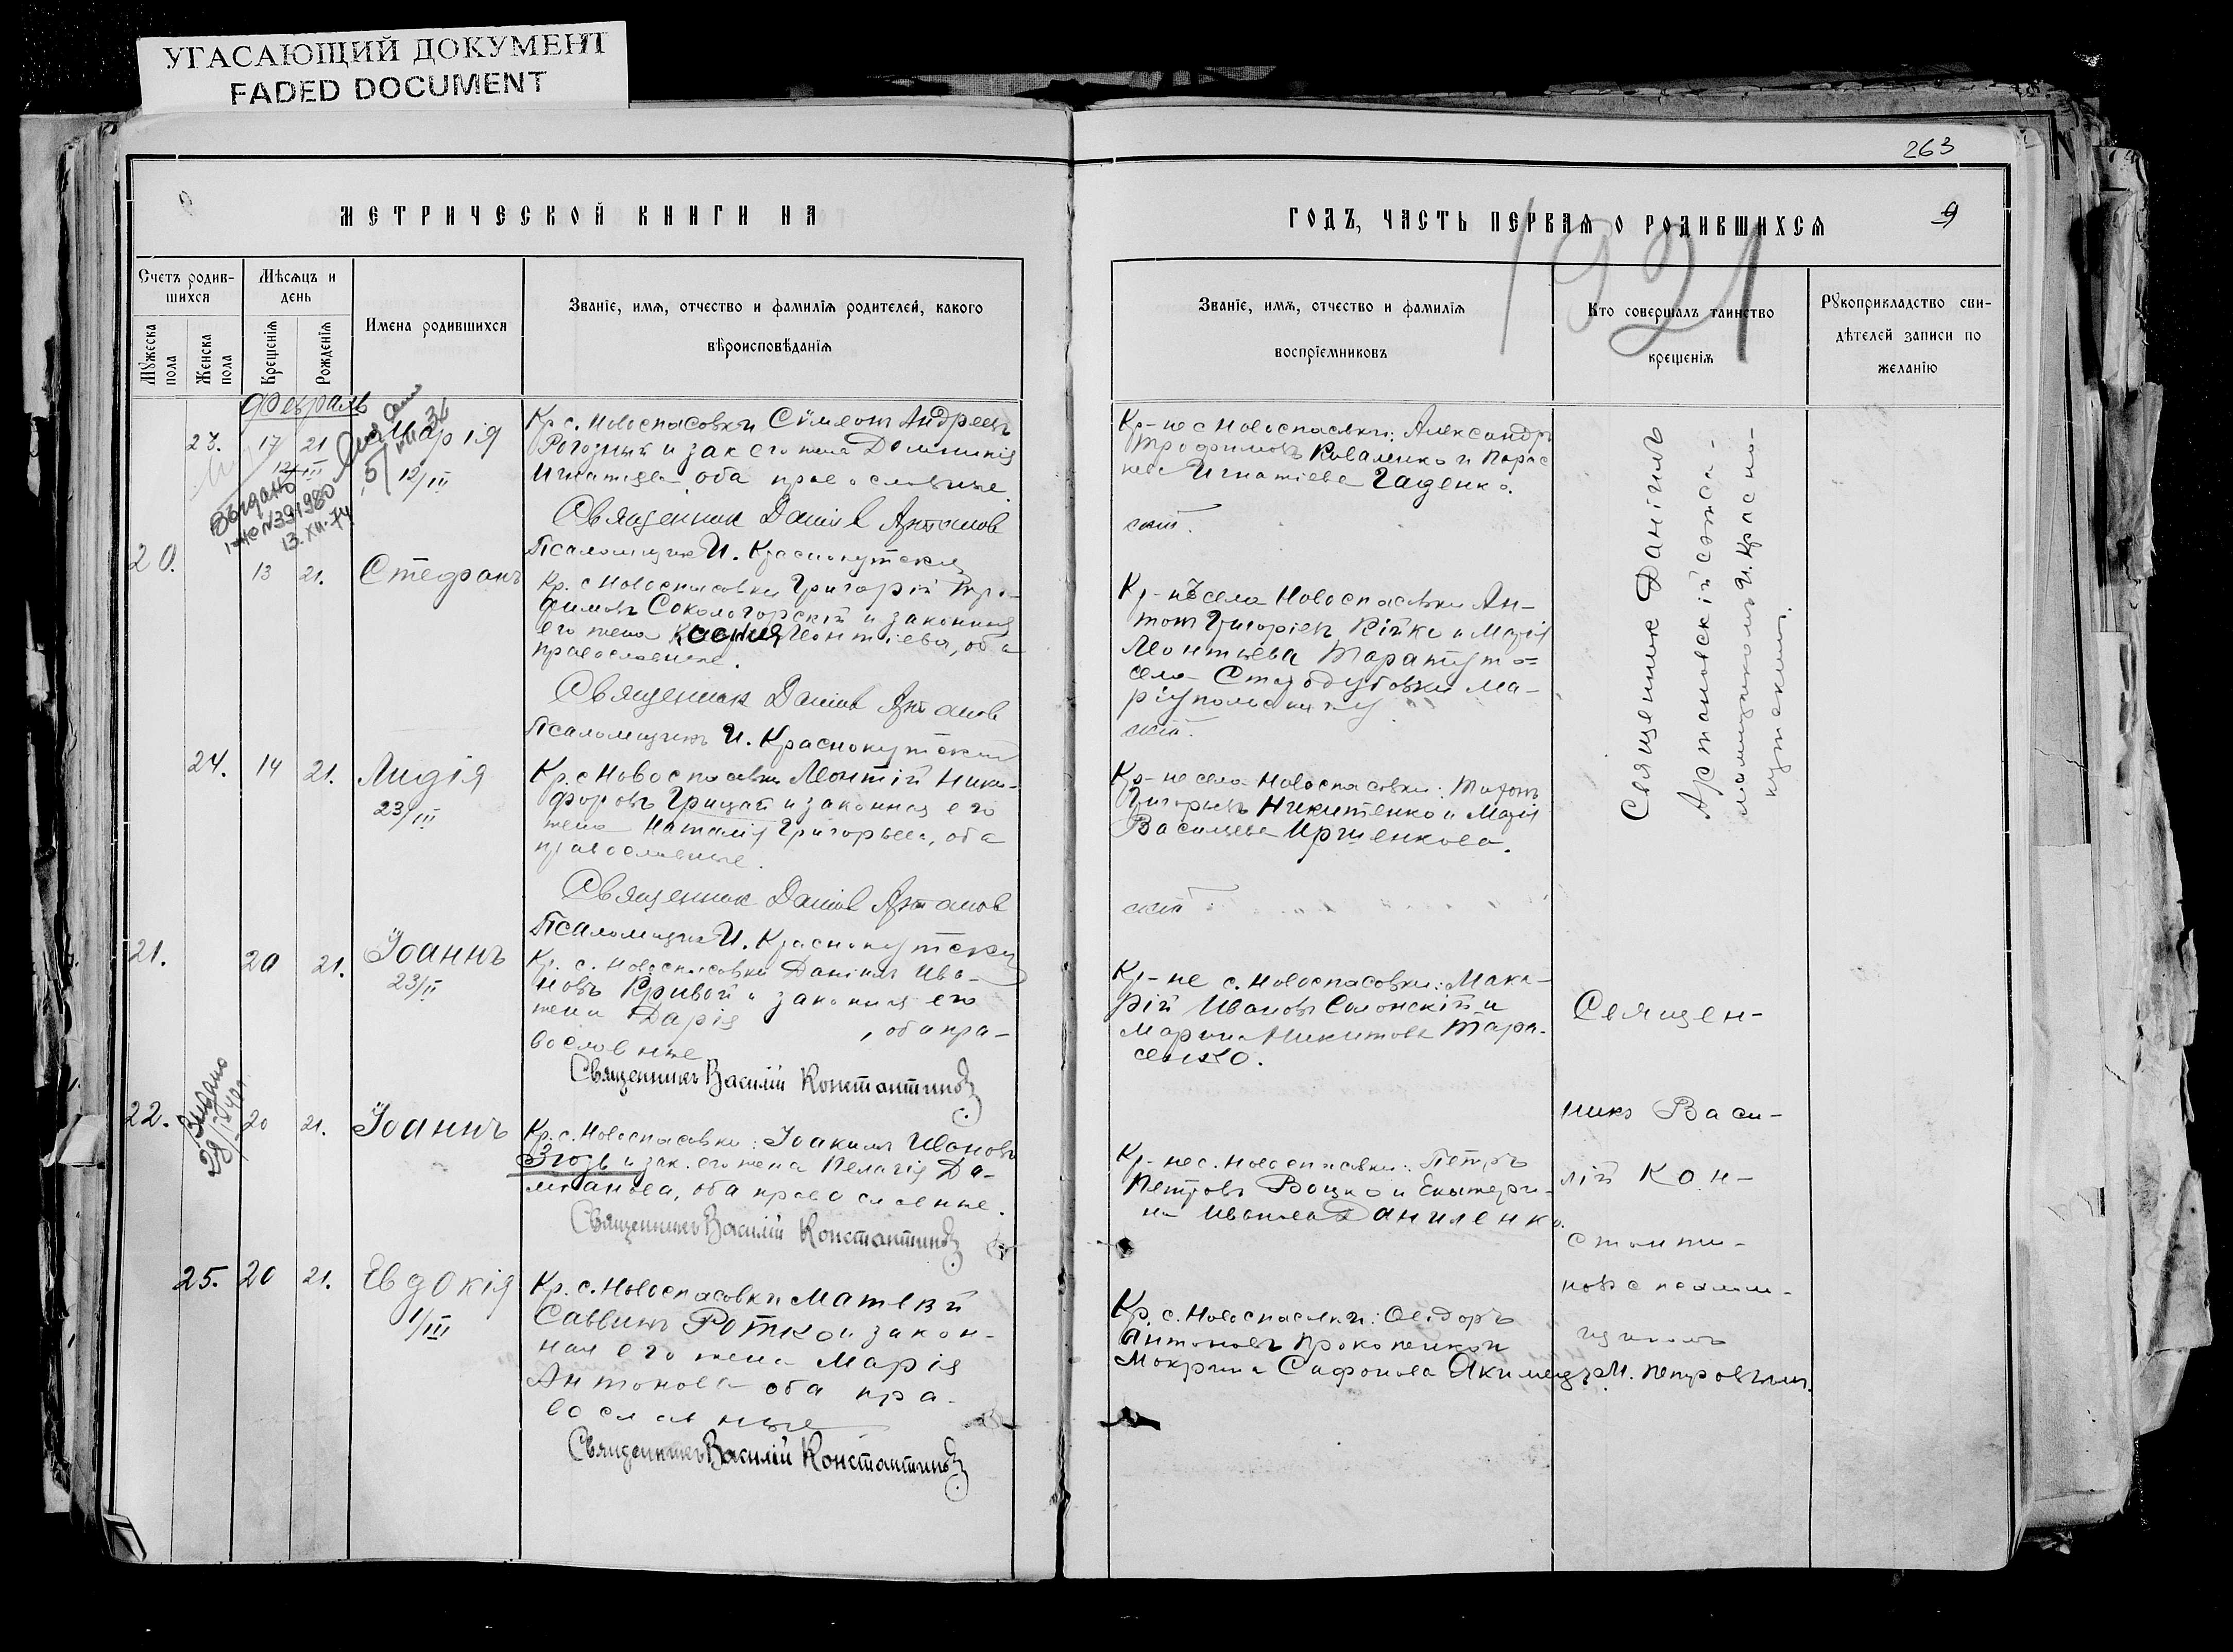 УГАСАЮЩИЙ ДОКУМЕНТ
FADED DOCUMENT
263
МЕТРИЧЕСКОЙ КНИГИ НА
ГОДЪ, ЧАСТЬ ПЕРВАЯ О РОДИВШИХСЯ
9
1921
Счетъ родив-
шихся
Мѣсяцъ и
день
Мужеска
пола
Женска
пола
Крещенія
Рожденія
Имена родившихся
Званіе, имя, отчество и фамилія родителей, какого
вѣроисповѣданія
Званіе, имя, отчество и фамилія
воспріемниковъ
Кто совершалъ таинство
крещенія
Рукоприкладство сви-
дѣтелей записи по
желанію
Февраль
23. 17 21 Марія
12/III
12/III
Выдано
№391980
13.XII-74
Кр. с. Новоспасовки Сѵмеонъ Андреевъ
Рогозный и зак его жена Домникія
Игнатіева, оба православные.
Священник Даниил Артанов
Псаломщик И. Краснокутский
Кр-не с Новоспасовки: Александръ
Трофимовъ Коваленко и Парас
кева Игнатіева Гаденко.
ский.
20. 13 21. Стефанъ
Кр. с Новоспасовки Григорій Тро-
фимовъ Сокологорскій и законная
его жена Ксения Леонтіева, оба
православные.
Священник Даниил Артанов
Псаломщикъ И. Краснокутский
Кр-нъ села Новоспасовки Ан-
тон Григоріев Кійко и Марія
Леонтьева Таратуто
села Стародубовки Ма-
ріупольск. у.
ский.
24. 14 21. Лидія
23/III
Кр. с Новоспасовки Леонтій Ники-
форовъ Грицай и законная его
жена Наталія Григорьева, оба
православные.
Священник Даниил Артанов
Псаломщик И. Краснокутский
Кр-не села Новоспасовки: Тихон
Григорьевъ Никитенко и Марія
Васильева
ский
Священник Даніилъ
Артановскій съ пса-
ломщикомъ И. Красно-
кутскимъ.
21. 20 21. Іоаннъ
23/II
Кр. с. Новоспасовки Даніилъ Ива-
новъ Кривой и законная его
жена Дарія , оба пра-
вославные
Священникъ Василій Константиновъ
Кр-не с. Новоспасовки: Мака-
рій Ивановъ Солонскій и
Марина Никитова Тара-
сенко.
Выдано
22. 20 21. Іоаннъ
Кр. с. Новоспасовки: Іоакимъ Ивановъ
Згозь и зак. его жена Пелагія Да-
міанова, оба православные.
Священникъ Василій Константиновъ
Кр-не с. Новоспасовки: Петръ
Петровъ Воцко и Екатери-
на Иванова Даниленко.
25. 20 21. Евдокія
1/III
Кр. с. Новоспасовки Матвѣй
Саввинъ Ротко и закон-
ная его жена Марія
Антонова оба пра-
вославные
Священникъ Василій Константиновъ
Кр. с. Новоспасовки: Ѳеодоръ
Антоновъ Прокопенко и
Мокрина Сафонова Якимецъ
Священ-
никъ Васи-
лій Кон-
станти-
новъ с псалом-
щикомъ
М. Петровымъ.